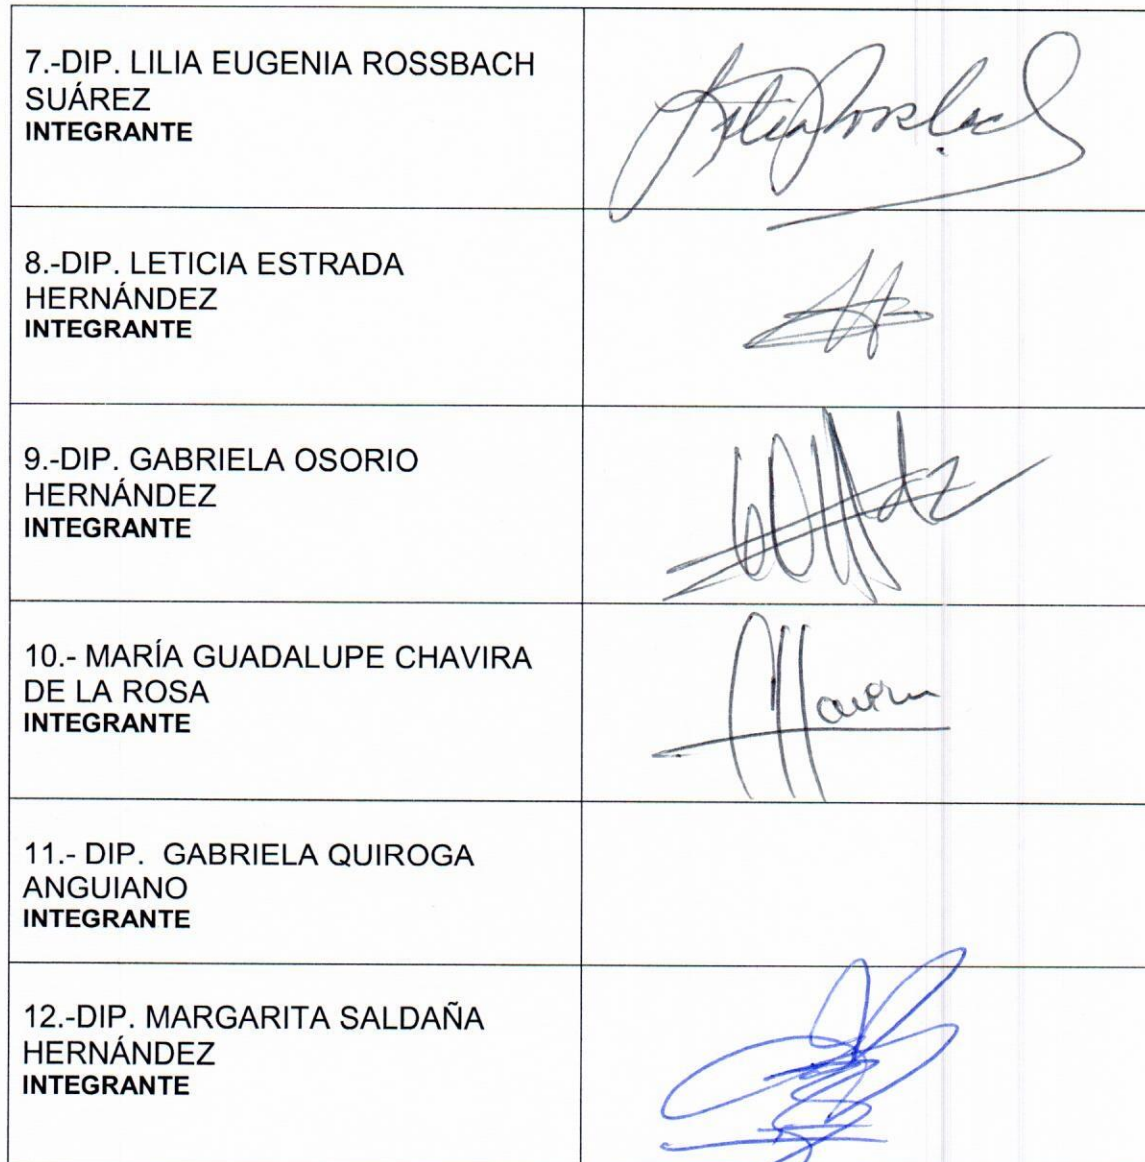 7.-DIP. LILIA EUGENIA ROSSBACH
SUÁREZ
INTEGRANTE
8.-DIP. LETICIA ESTRADA
HERNÁNDEZ
INTEGRANTE
9.-DIP. GABRIELA OSORIO
HERNÁNDEZ
INTEGRANTE
10.- MARÍA GUADALUPE CHAVIRA
DE LA ROSA
INTEGRANTE
11.- DIP. GABRIELA QUIROGA
ANGUIANO
INTEGRANTE
12.-DIP. MARGARITA SALDAÑA
HERNÁNDEZ
INTEGRANTE